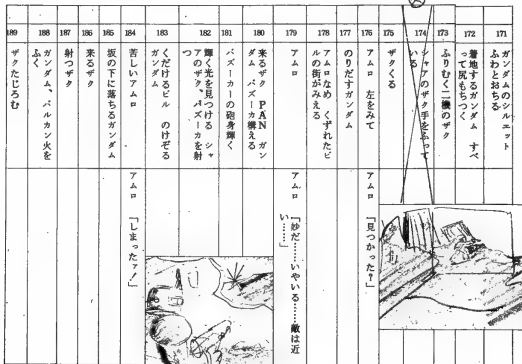 171
ガンダムのシルエット
ふわとおちる
172
着地するガンダム すべ
って尻もちつく
173
ふりむく二機のザク
174
シャアのザク手をふって
いる
175
ザクくる
176
アムロ 左をみて
アムロ
「見つかった?」
177
のりだすガンダム
178
アムロなめ くずれたビ
ルの街がみえる
179
アムロ
アムロ
「妙だ……いやいる……敵は近
い……」
180
来るザク PAN ガン
ダム、バズーカ構える
181
バズーカーの砲身輝く
182
輝く光を見つける シャ
アのザク、バズーカを射
つ
183
くだけるビル のけぞる
ガンダム
184
苦しいアムロ
アムロ
「しまったァ!」
185
坂の下に落ちるガンダム
186
来るザク
187
射つザク
188
ガンダム、バルカン火を
ふく
189
ザクたじろむ